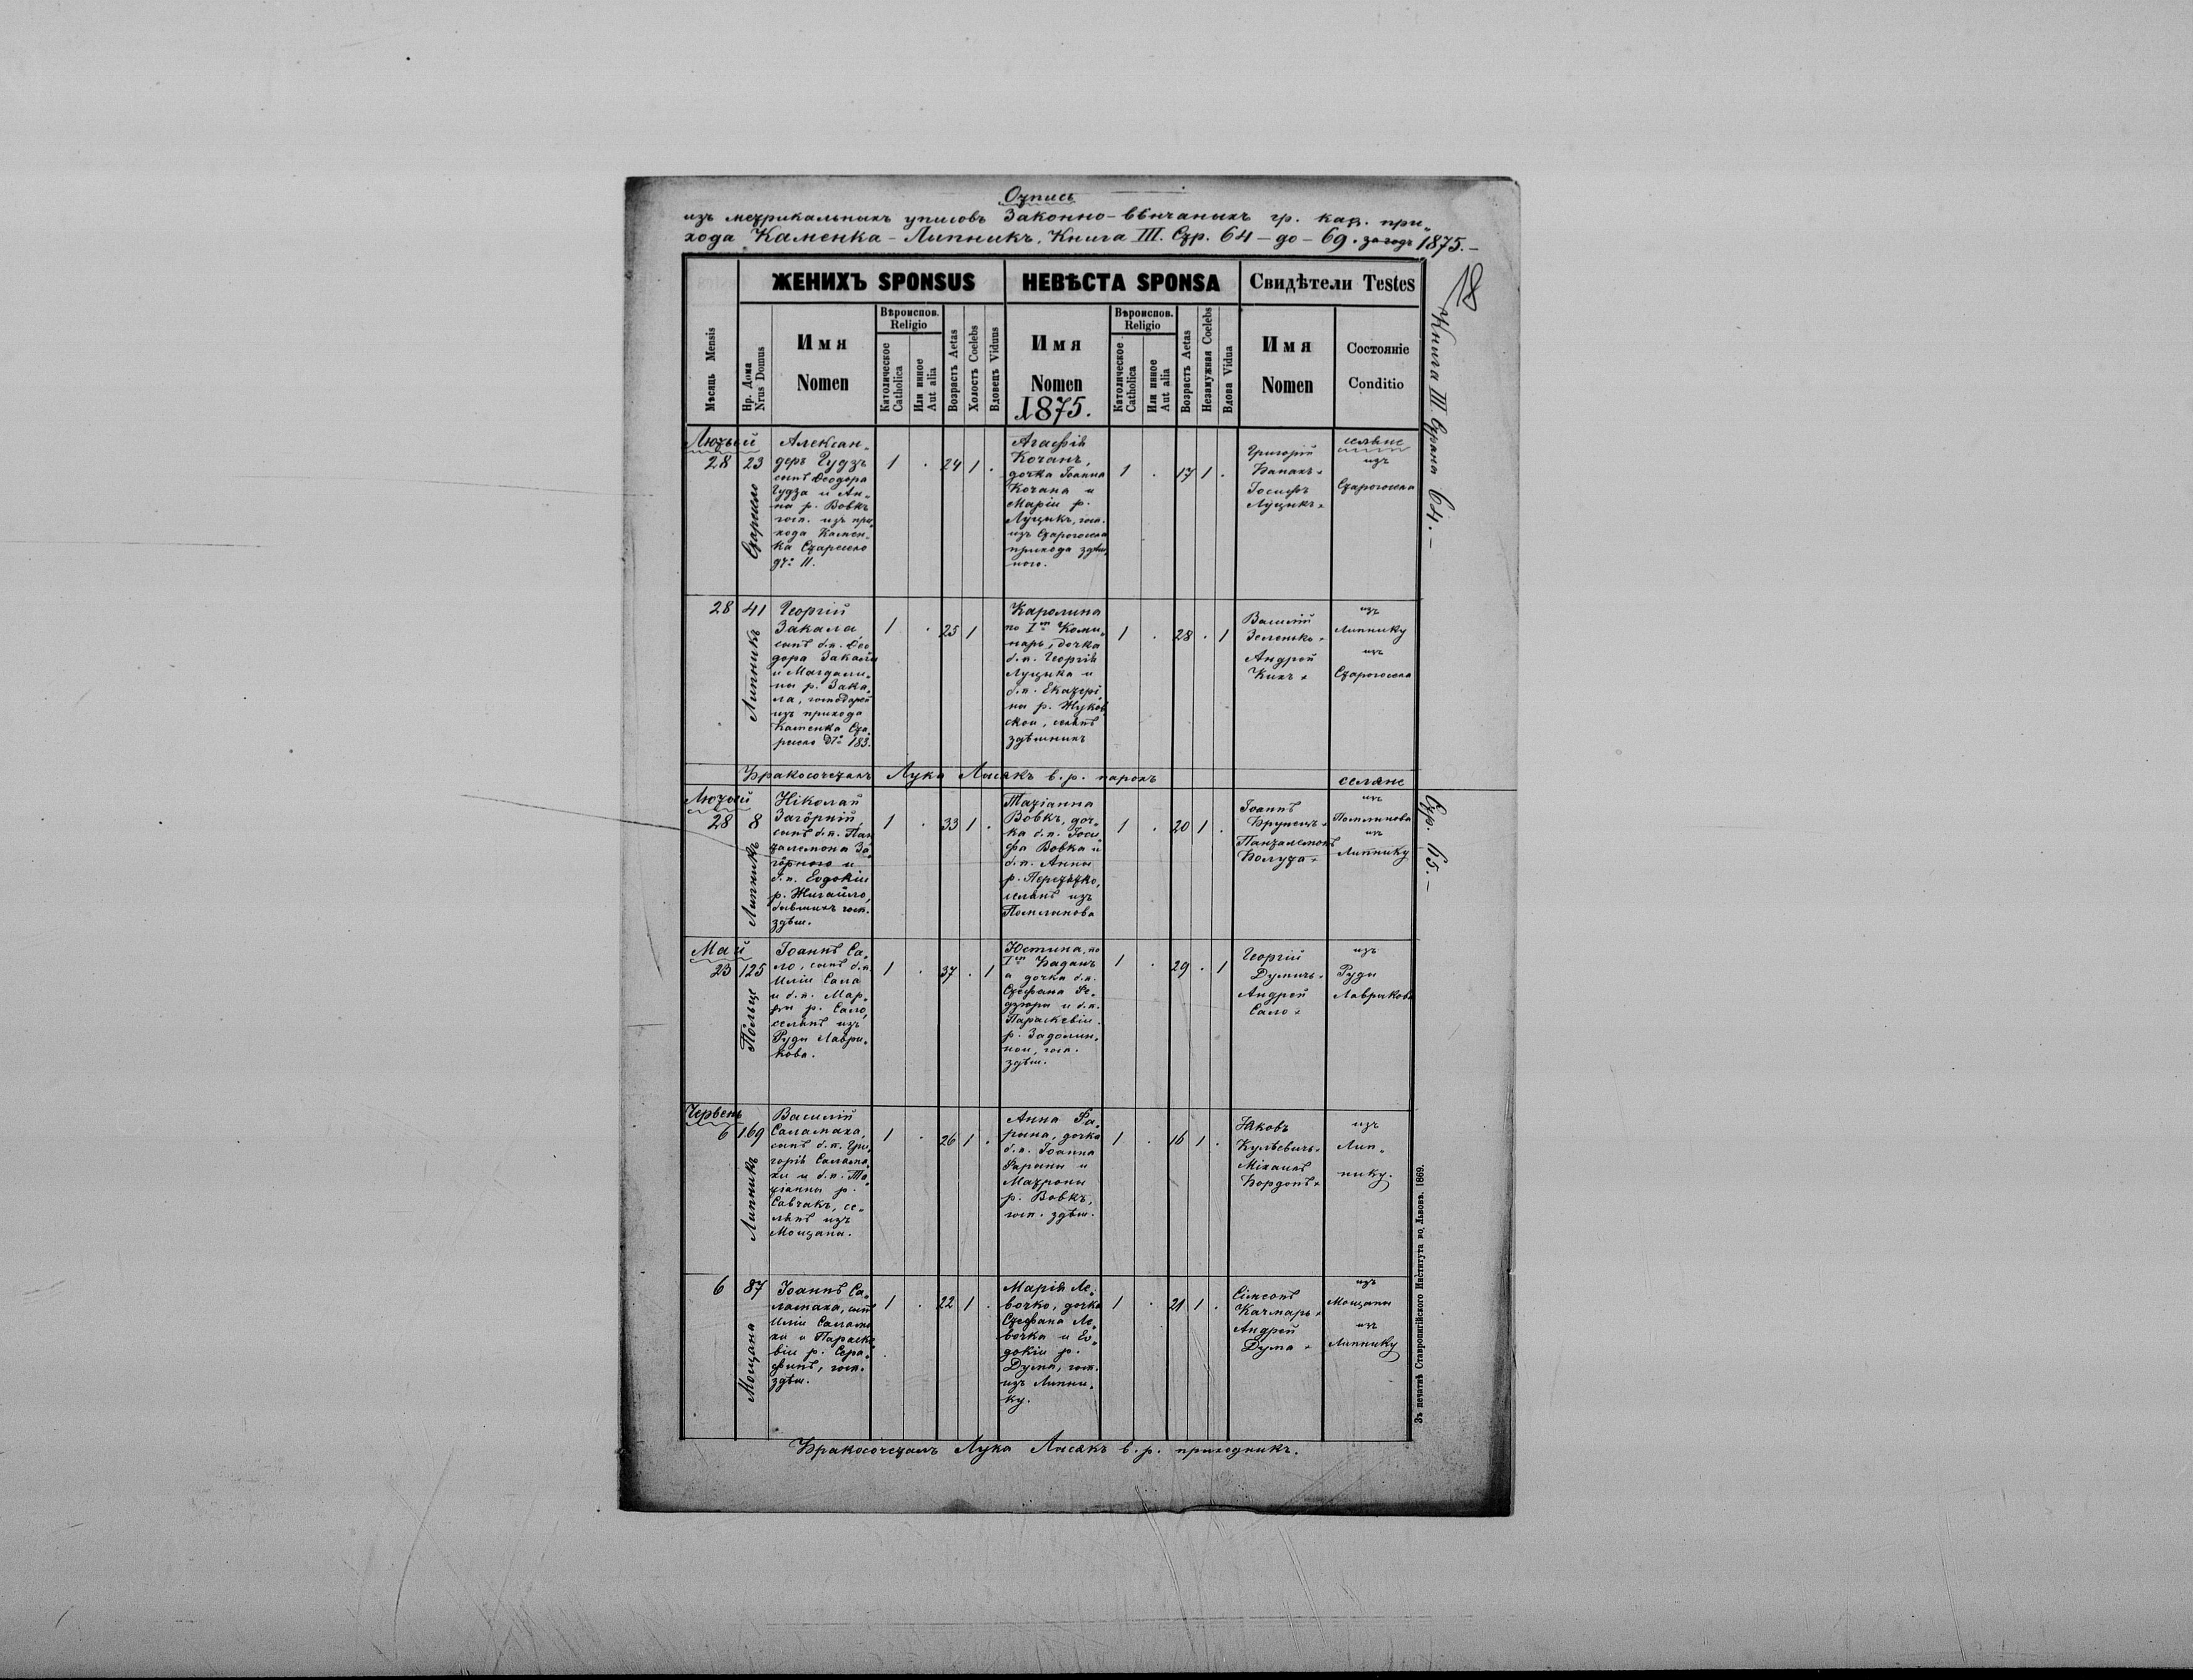 Отпись
изъ метрикальныхъ уписовъ Законно-вѣнчаныхъ гр. кат. при„
хода Каменка-Липникъ, Книга III. Стр. 64-до-69. за годъ 1875.-
18
Книга III. Страна 64.-
ЖЕНИХЪ SPONSUS
НЕВѢСТА SPONSA
Свидѣтели Testes
Мѣсяць Mensis
Нр. Дома
Nrus Domus
Имя
Nomen
Вѣроиспов.
Religio
Католическое
Catholica
Или иное
Aut alia
Возрастъ Aetas
Холостъ Coelebs
Вдовецъ Viduus
Имя
Nomen
1875.
Вѣроиспов.
Religio
Католическое
Catholica
Или иное
Aut alia
Возрастъ Aetas
Незамужная Coelebs
Вдова Vidua
Имя
Nomen
Состояніе
Conditio
Лютый
28
23
Старесело
Алексан„
деръ Гудзъ
сынъ Ѳеодора
Гудза и Ан„
ны р. Вовкъ
госп. изъ при„
хода Камен„
ка Старесело
дг: 11.
1 . 24 1 .
Агафія
Кочанъ,
дочка Іоанна
Кочана и
Маріи р.
Луцикъ, госп.
изъ Старогосела
прихода здѣш„
ного.
1 . 17 1 .
Григорій
Банахъ +
Іосифъ
Луцикъ +
селяне
изъ
Старогосела
28
41
Липникъ
Георгій
Закала
сынъ б.п. Ѳео
дора Закалы
и Магдали„
ны р. Зака„
ла, господарей
изъ прихода
Каменка Ста„
ресело № 183.
1 . 25 1
Каролина
по I Коми„
наръ, дочка
б.п. Георгія
Луцика и
б.п. Екатері
ны р. Жуков
ской, селянъ
здѣшнихъ
1 . 28 . 1
Василій
Зеленко +
Андрей
Кихъ +
изъ
Липнику
изъ
Старогосела
Бракосочеталъ Лука Лысякъ в.р. парохъ
селяне
Стр. 65.-
Лютый
28
8
Липникъ
Ніколай
Загорній,
сынъ б.п. Пан
талемона За„
горного и
б.п. Евдокіи
р. Жигайло,
бывшихъ госп.
здѣш.
1 . 33 1 .
Татіанна
Вовкъ, доч„
ка б.п. Іоси„
фа Вовка и
б.п. Анны
р. Перетятко,
селянъ изъ
Помлинова
1 . 20 1 .
Іоаннъ
Брунець +
Панталемонъ
Болута +
изъ
Помлинова
изъ
Липнику
Май
23
125
Пôльце
Іоаннъ Са„
ло, сынъ б.п.
Иліи Сала
и б.п. Мар„
ѳы р. Сало,
селянъ изъ
Руды Лаври„
кова.
1 . 37 . 1
Юстина, по
I Баданъ
а дочка б.п.
Стефана Фе„
дзюры и б.п.
Параскевіи
р. Задолин„
ной, госп.
здѣш.
1 . 29 . 1
Георгій
Думичъ +
Андрей
Сало +
изъ
Руды
Лаврикова
Червень
6
169
Липникъ
Василій
Саламаха,
сынъ б.п. Гри„
горія Салама„
хи и б.п. Та„
тіанны р.
Савчакъ, се„
лянъ изъ
Мощаны.
1 . 26 1 .
Анна Фа„
рына, дочка
б.п. Іоанна
Фарыны и
Матроны
р. Вовкъ,
госп. здѣш.
1 . 16 1 .
Яковъ
Кулѣевичъ +
Міхаилъ
Бордопъ +
изъ
Лип„
нику.
6
87
Мощана
Іоаннъ Са„
ламаха, сынъ
Иліи Салама
хи и Параске
віи р. Сера„
финъ, госп.
здѣш.
1 . 22 1 .
Марія Ле„
вочко, дочка
Стефана Ле„
вочка и Ев„
докіи р.
Дума, госп.
изъ Липни„
ку.
1 . 21 1 .
Сімеонъ
Качмаръ +
Андрей
Дума +
изъ
Мощаны
изъ
Липнику
Бракосочеталъ Лука Лысякъ в.р. приходникъ.
Зъ печатнѣ Ставропигійского Института во Львовѣ. 1869.